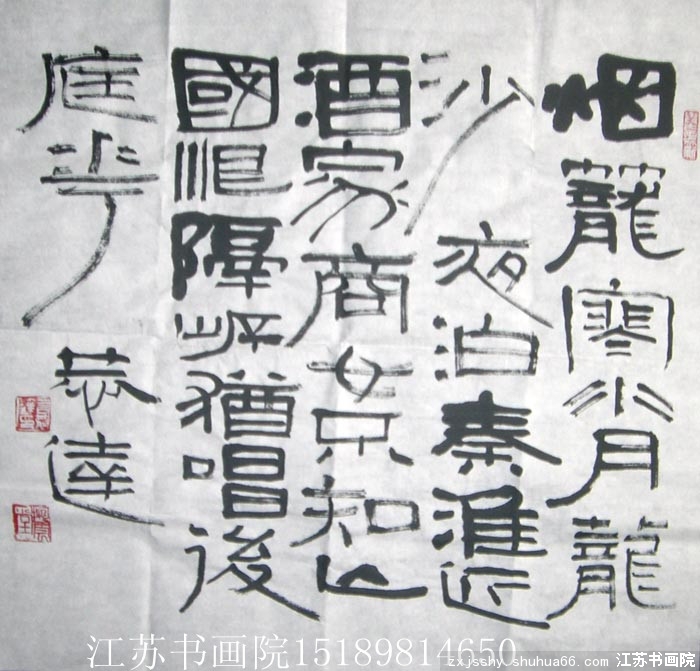 烟籠寒水月龍
沙 夜泊秦淮近
酒家商女不知亡
國恨隔江猶唱後
庭花 恭達
江苏书画院15189814650
zxjsshy.shuhua66.com 江苏书画院